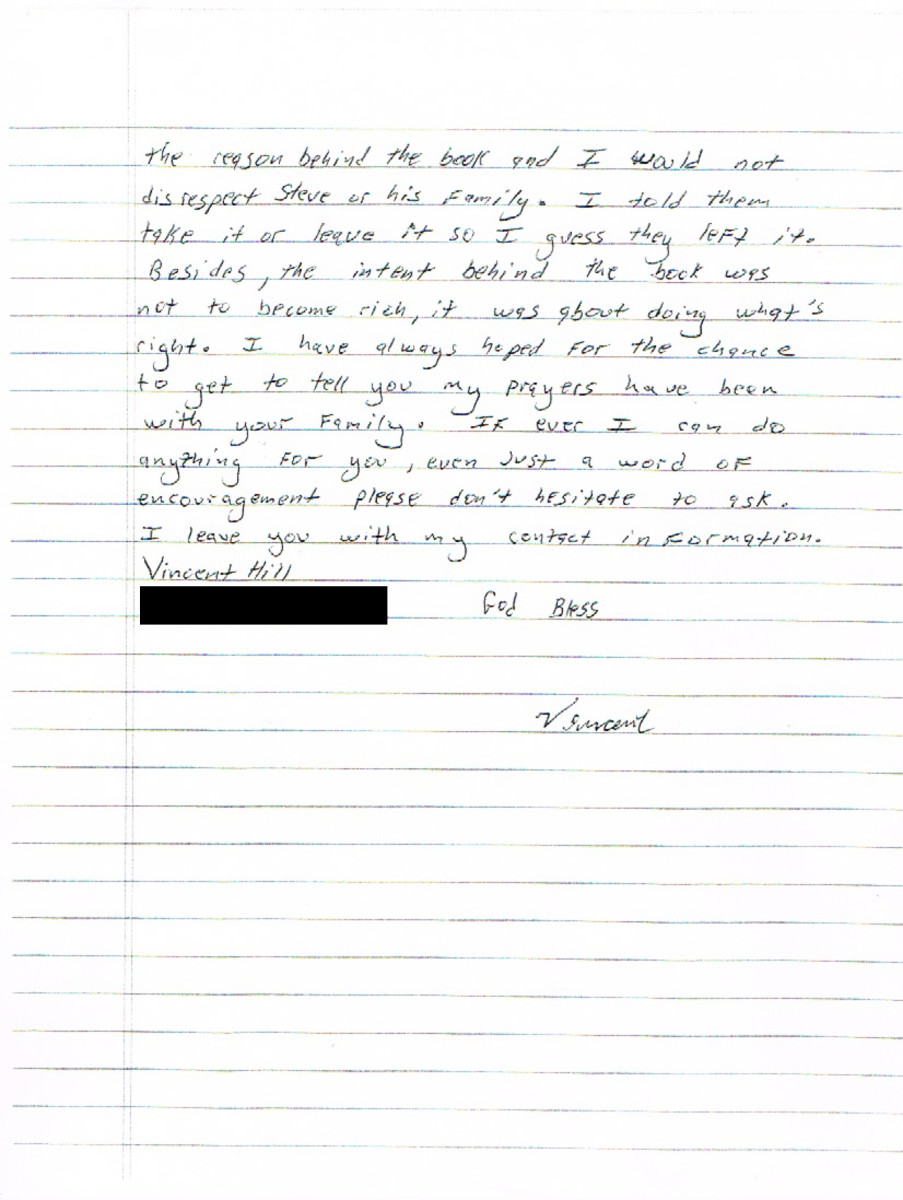 the reason behind the book and I would not
disrespect Steve or his Family. I told them
take it or leave it so I guess they left it.
Besides, the intent behind the book was
not to become rich, it was about doing what's
right. I have always hoped For the chance
to get to tell you my prayers have been
with your Family. IF ever I can do
anything For you, even Just a word oF
encouragement please don't hesitate to ask.
I leave you with my contact inFormation.
Vincent Hill
God Bless
Vincent